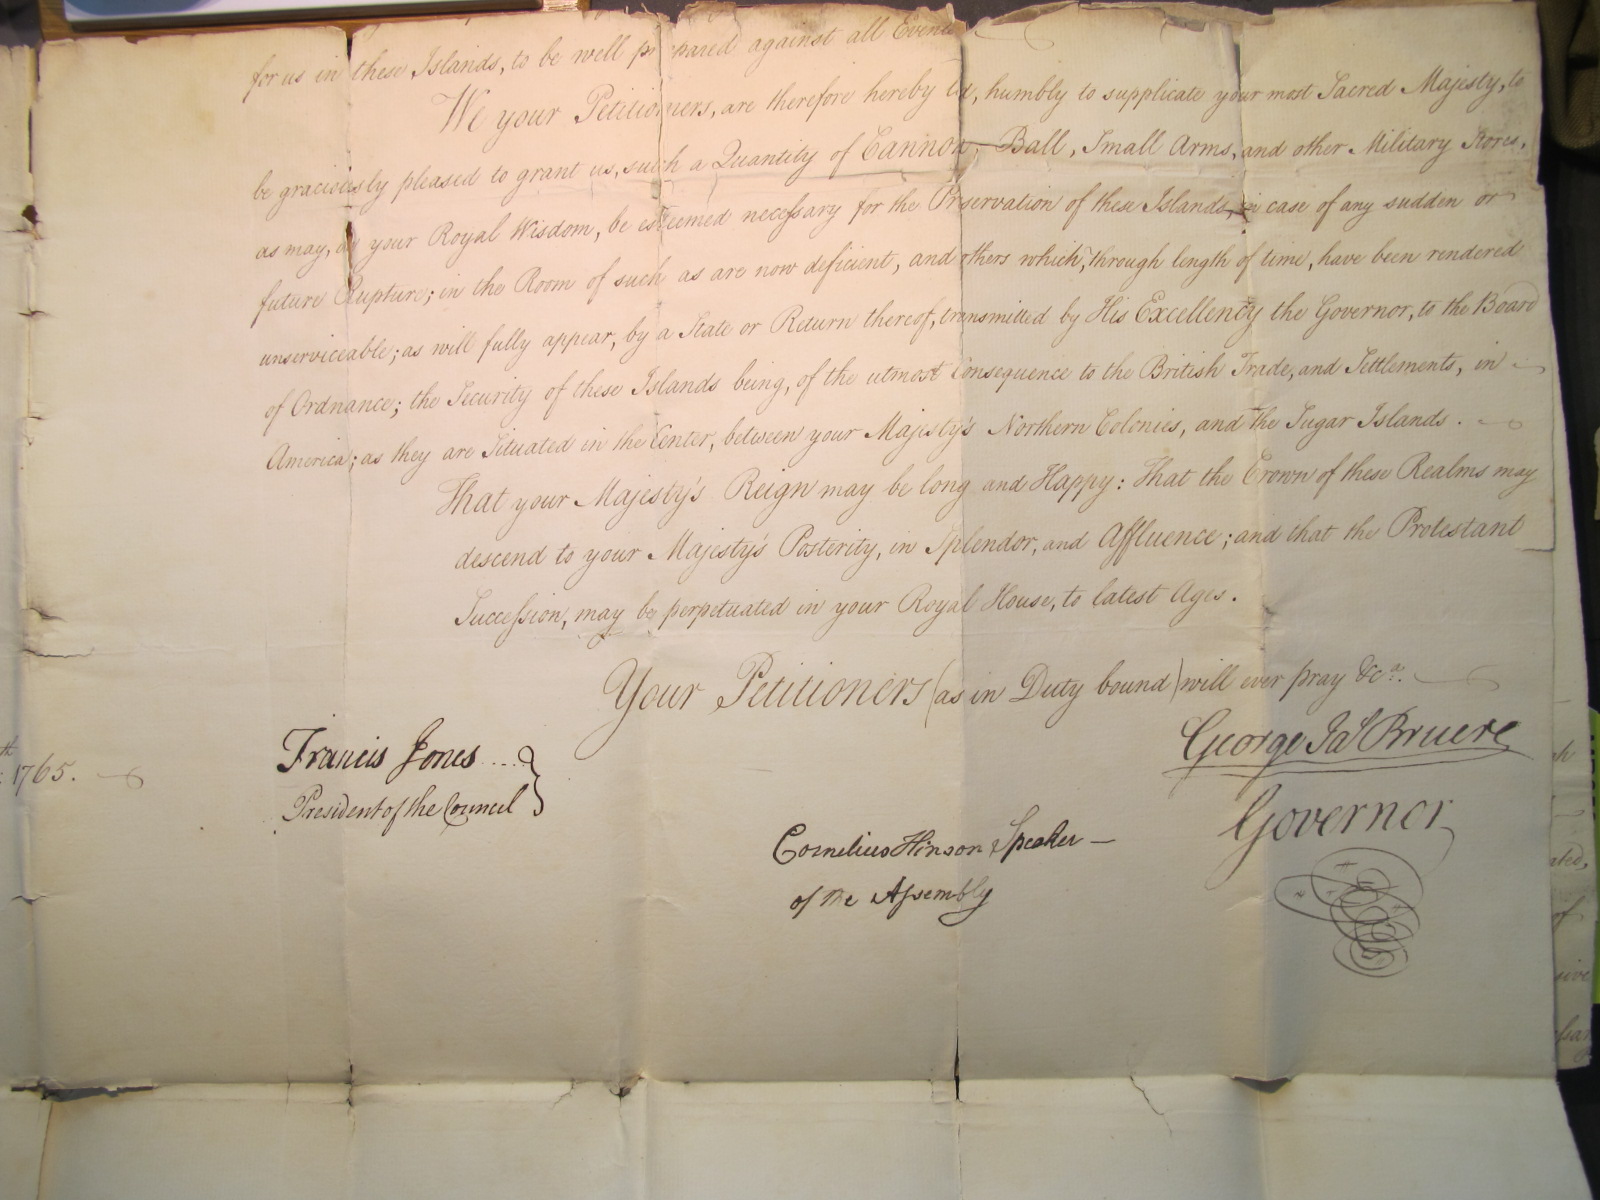 for us in these Islands, to be well prepared against all Events
We your Petitioners, are therefore hereby led, humbly to supplicate your most Sacred Majesty, to
be graciously pleased to grant us, such a Quantity of Cannon, Ball, Small Arms, and other Military Stores,
as may, in your Royal Wisdom, be esteemed necessary for the Preservation of these Islands, in case of any sudden or
future Rupture; in the Room of such as are now deficient, and others which, through length of time, have been rendered
unserviceable; as will fully appear, by a State or Return thereof, transmitted by His Excellency the Governor, to the Board
of Ordnance; the Security of these Islands being, of the utmost Consequence to the British Trade, and Settlements, in
America; as they are Situated in the Center, between your Majesty's Northern Colonies, and the Sugar Islands.
That your Majesty's Reign may be long and Happy: That the Crown of these Realms may
descend to your Majesty's Posterity, in Splendor, and Affluence; and that the Protestant
Succession, may be perpetuated in your Royal House, to latest Ages.
Your Petitioners (as in Duty bound) will ever pray &c.a
George Jas Bruere
Governor
Francis Jones
President of the Council
th 1765.
Cornelius Hinson Speaker
of the Assembly